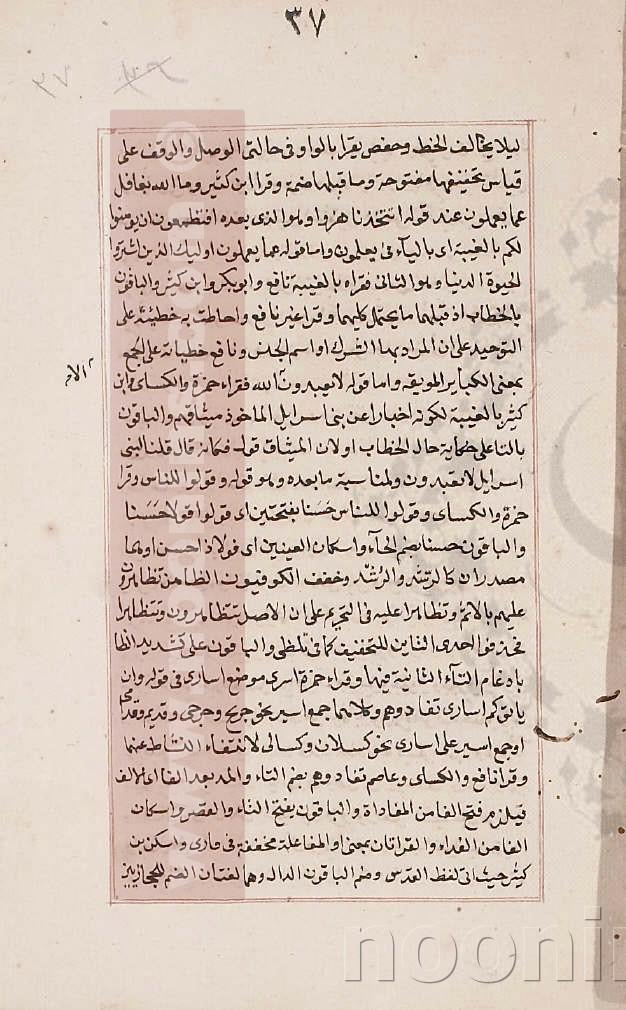 ٣٧
٣٧
ليلا يخالف الخط وحفص يقرا بالواو فى حالتى الوصل والوقف على
قياس تخفيفها مفتوحة وما قبلها ضمة وقرا ابن كثير وما الله بغافل
عما يعملون عند قوله اتتخذنا هزوا وهو الذى بعده افتطمعون ان يومنوا
لكم بالغيبة اى بالياء فى يعلمون واما قوله عما يعملون اوليك الذين اشتروا
الحيوة الدنيا وهو الثانى فقراه بالغيبة نافع وابو بكر وابن كثير والباقون
بالخطاب اذ قبلهما ما يحتمل كليهما وقرا غير نافع واحاطت به خطيئته على
التوحيد على ان المراد بها الشرك او اسم الجنس ونافع خطياته على الجمع
بمعنى الكبأير الموبقه واما قوله لا يعبدون الا الله فقراء حمزة والكساى وابن
كثير بالغيبة لكونه اخبارا عن بنى اسرايل الماخوذ ميثاقهم والباقون
بالتا على حكاية حال الخطاب او لان الميثاق قوله فكانه قال قلنا لبنى
اسرايل لا تعبدون ولمناسبة ما بعده وهو قوله وقولوا للناس وقرا
حمزة والكساى وقولوا للناس حَسَنا بفتحتين اى قولوا قولا حَسَنا
والباقون حسنا بضم الحآء واسكان العينين اى قولا ذا حسن او هما
مصدران كالرَشَد والرُشْد وخفف الكوفيون الظا من تظاهرون
عليهم بالاثم وتظاهرا عليه فى التحريم على ان الاصل تتظاهرون وتتظاهرا
فحذفوا احدى التائين للتخفيف كما فى تلظى والباقون على تشديد الظا
بادغام التآء الثانية فيها وقراء حمزة اسرى موضع اسارى فى قوله وان
ياتوكم اسارى تفادوهم وكلاهما جمع اسير نحو جريح وجرحى وقديم وقدامى
او جمع اسير على اسارى نحو كسلان وكسالى لانتفاء النشاط عنهما
وقرا نافع والكساى وعاصم تفادوهم بضم التاء والمد بعد الفا اى الالف
فيلزم فتح الفا من المفاداة والباقون بفتح التاء والقصر واسكان
الفا من الفداء والقراتان بمعنى او المفاعلة مخففة فى وارى واسكن بن
كثير حيث اتى لفظ القدس وضم الباقون الدال وهما لغتان الضم للحجازيين
الا
noonin